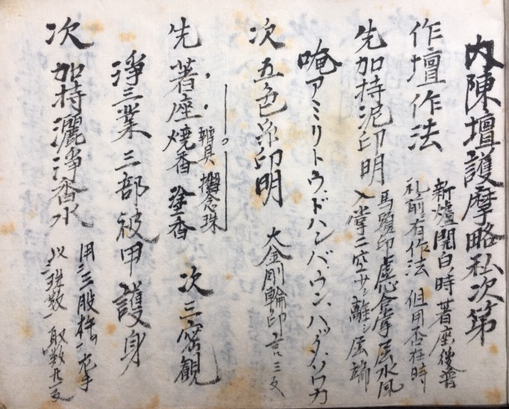 内陳壇護摩略私次第
作壇作法
新爐開白時著座後普
礼前有作法但用否在時
先加持泥印明
馬頭印虚心合掌屈水風
入掌二空少離シ屈端
唵アミリトウドハンバウンハッタソワカ
次五色糸印明
大金剛輪印言三反
先著座
辨具 摺念珠
焼香 塗香
次三密観
浄三業三部被甲護身
次加持灑浄香水
用三股杵左手
以珠数取数